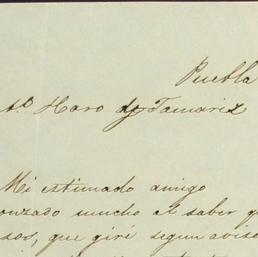 Puebla
to Haro y Tamariz
Mi estimado amigo
onzado mucho al saber q
sos, que giré segun aviso